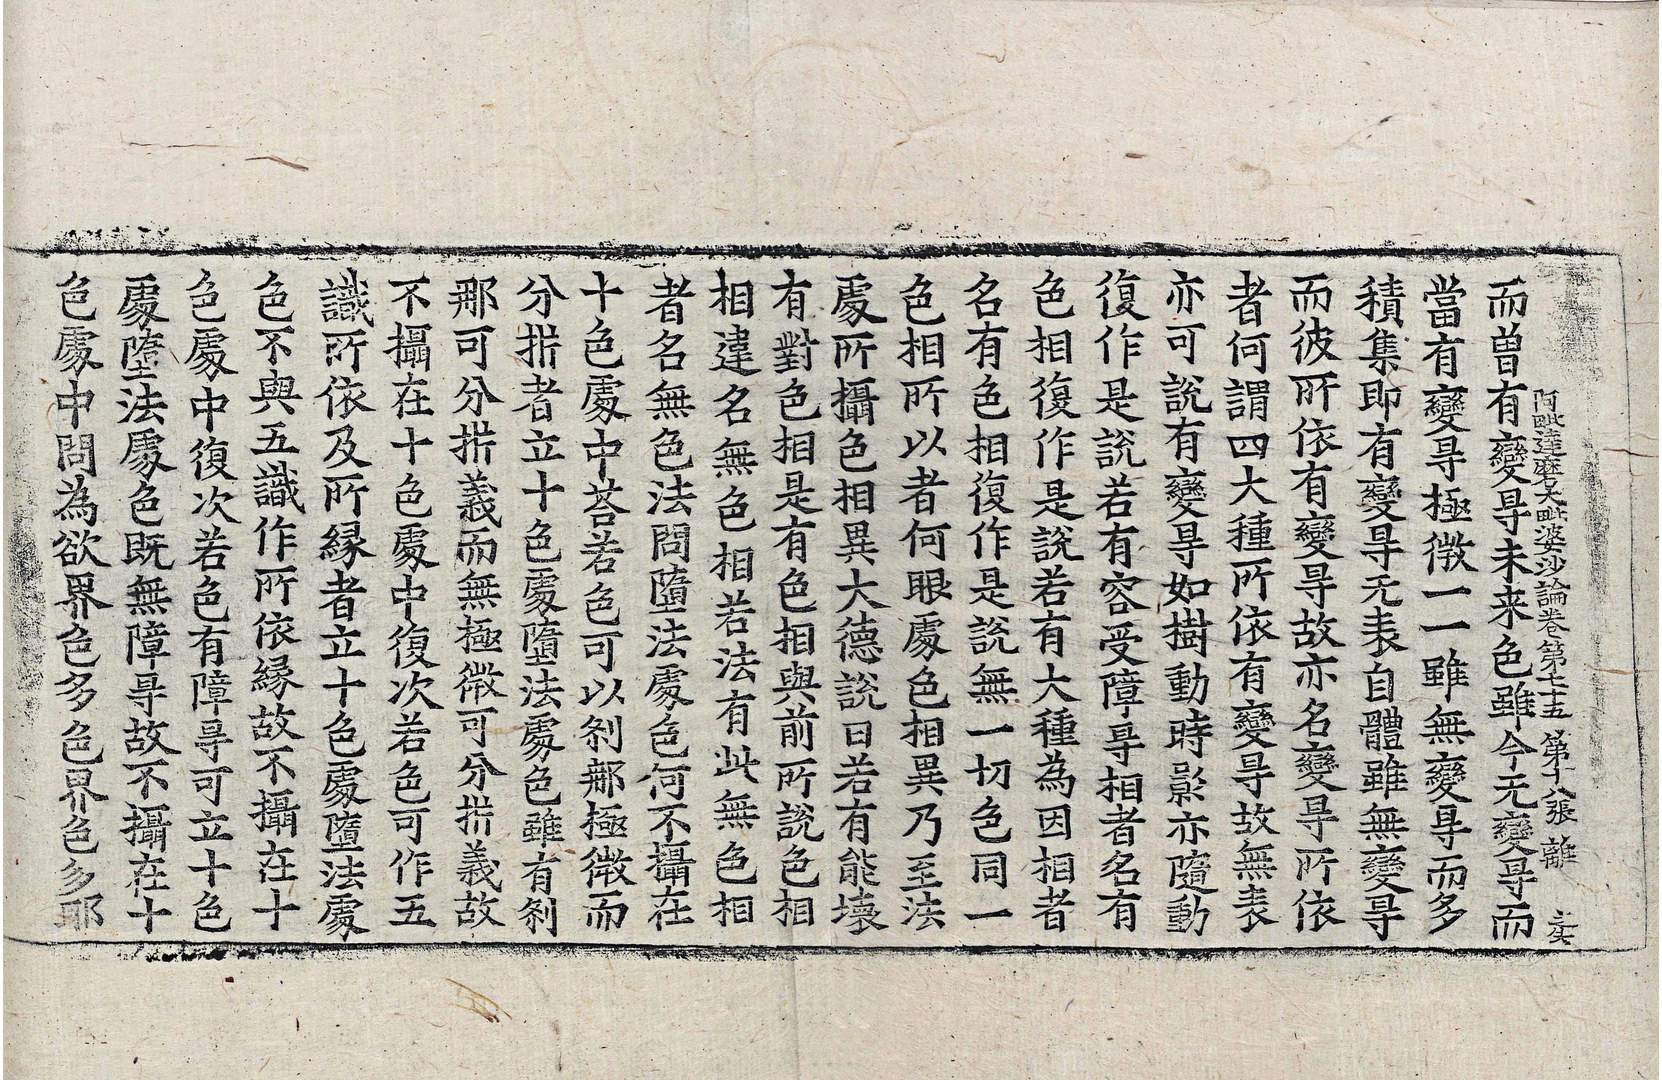 阿毗達磨大毗婆沙論卷第七十五 第十八張 離
而曾有變㝵未来色雖今无變㝵而
當有變㝵極微一一雖無變㝵而多
積集即有變㝵无表自體雖無變㝵
而彼所依有變㝵故亦名變㝵所依
者何謂四大種所依有變㝵故無表
亦可說有變㝵如樹動時影亦隨動
復作是說若有容受障㝵相者名有
色相復作是說若有大種為因相者
名有色相復作是說無一切色同一
色相所以者何眼處色相異乃至法
處所攝色相異大德說曰若有能壞
有對色相是有色相與前所說色相
相違名無色相若法有此無色相
者名無色法問墮法處色何不攝在
十色處中荅若色可以刹那極微而
分拆者立十色處墮法處色雖有刹
那可分拆義而無極微可分拆義故
不攝在十色處中復次若色可作五
識所依及所縁者立十色處墮法處
色不與五識作所依縁故不攝在十
色處中復次若色有障㝵可立十色
處墮法處色既無障㝵故不攝在十
色處中問為欲界色多色界色多耶